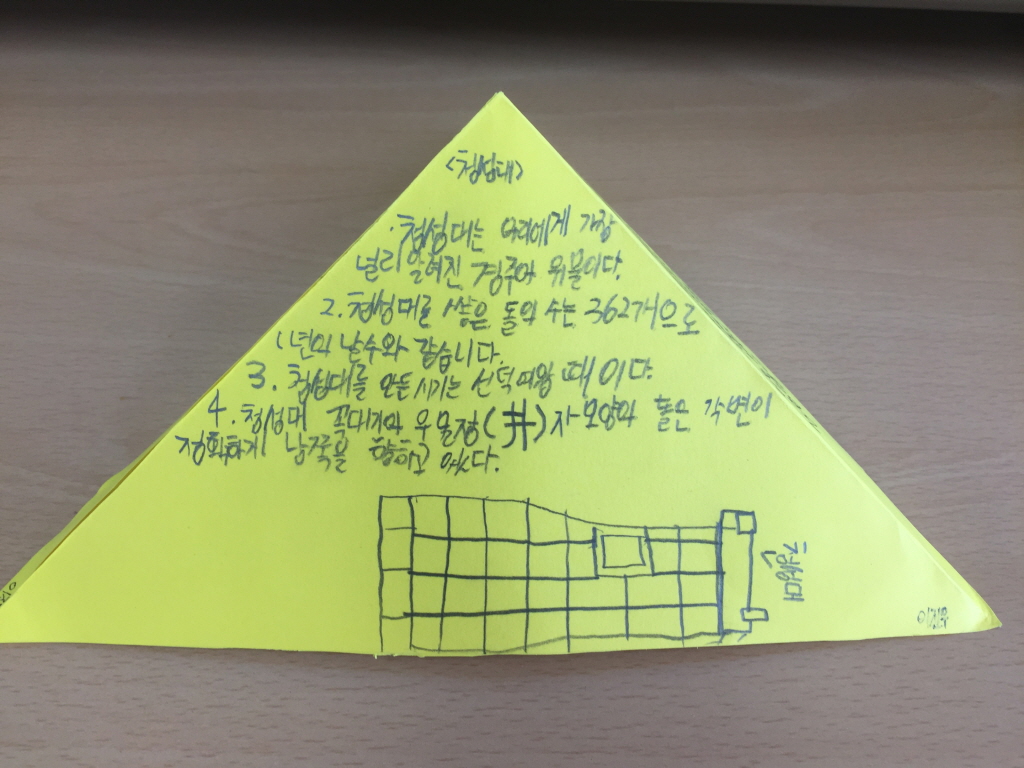 <첨성대>
·첨성대는 우리에게 가장
널리 알려진 경주의 유물이다.
2. 첨성대를 쌓은 돌의 수는 362개으로
1년의 날수와 같습니다.
3. 첨성대를 만든 시기는 선덕여왕 때이다.
4. 첨성대 꼭대기의 우물정(井)자 모양의 돌은 각변이
정확하게 남쪽을 향하고 있다.
첨성대